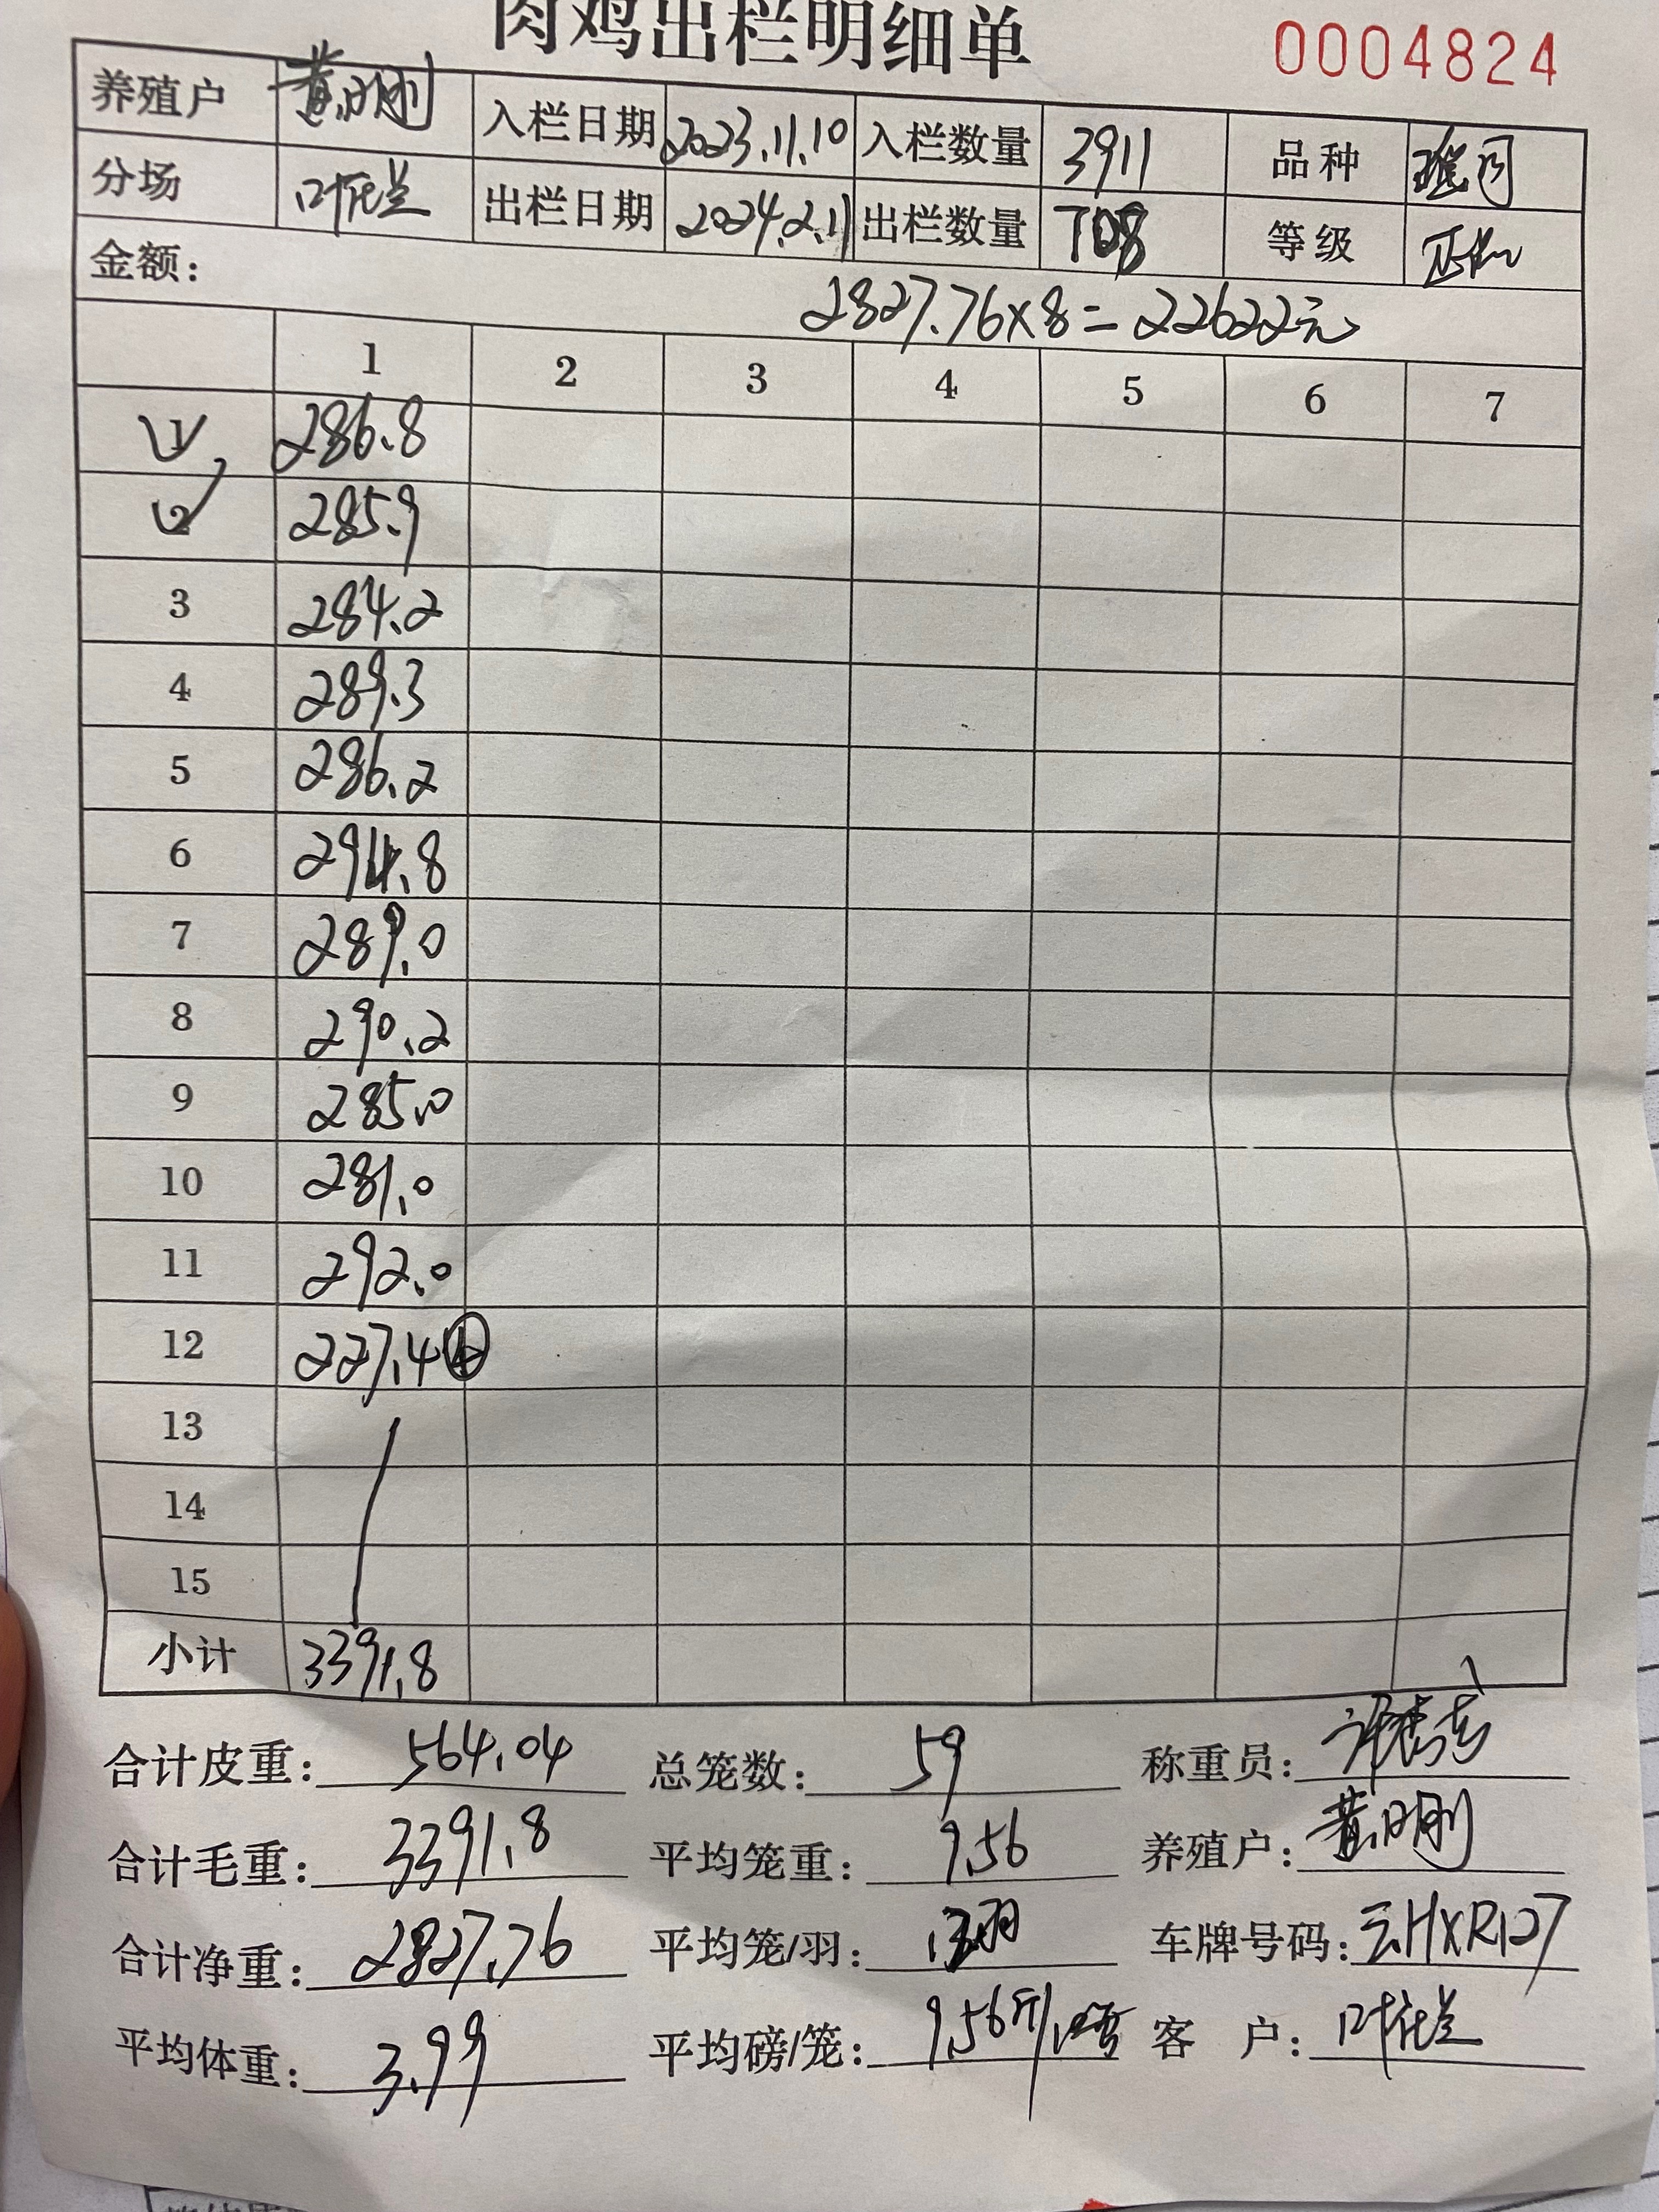 肉鸡出栏明细单 0004824
养殖户 黄明刚 入栏日期 2023.11.10 入栏数量 3911 品种
分场 叶在兰 出栏日期 2024.2.11 出栏数量 708 等级
金额: 2827.76×8=22622元
1 2 3 4 5 6 7
1 286.8
2 285.9
3 284.2
4 289.3
5 286.2
6 294.8
7 289.0
8 290.2
9 285.0
10 281.0
11 292.0
12 227.4 ④
13
14
15
小计 3391.8
合计皮重: 564.04 总笼数: 59 称重员:
合计毛重: 3391.8 平均笼重: 9.56 养殖户: 黄明刚
合计净重: 2827.76 平均笼/羽: 车牌号码: 云HXR127
平均体重: 3.99 平均磅/笼: 9.56斤/ 客 户: 叶在兰